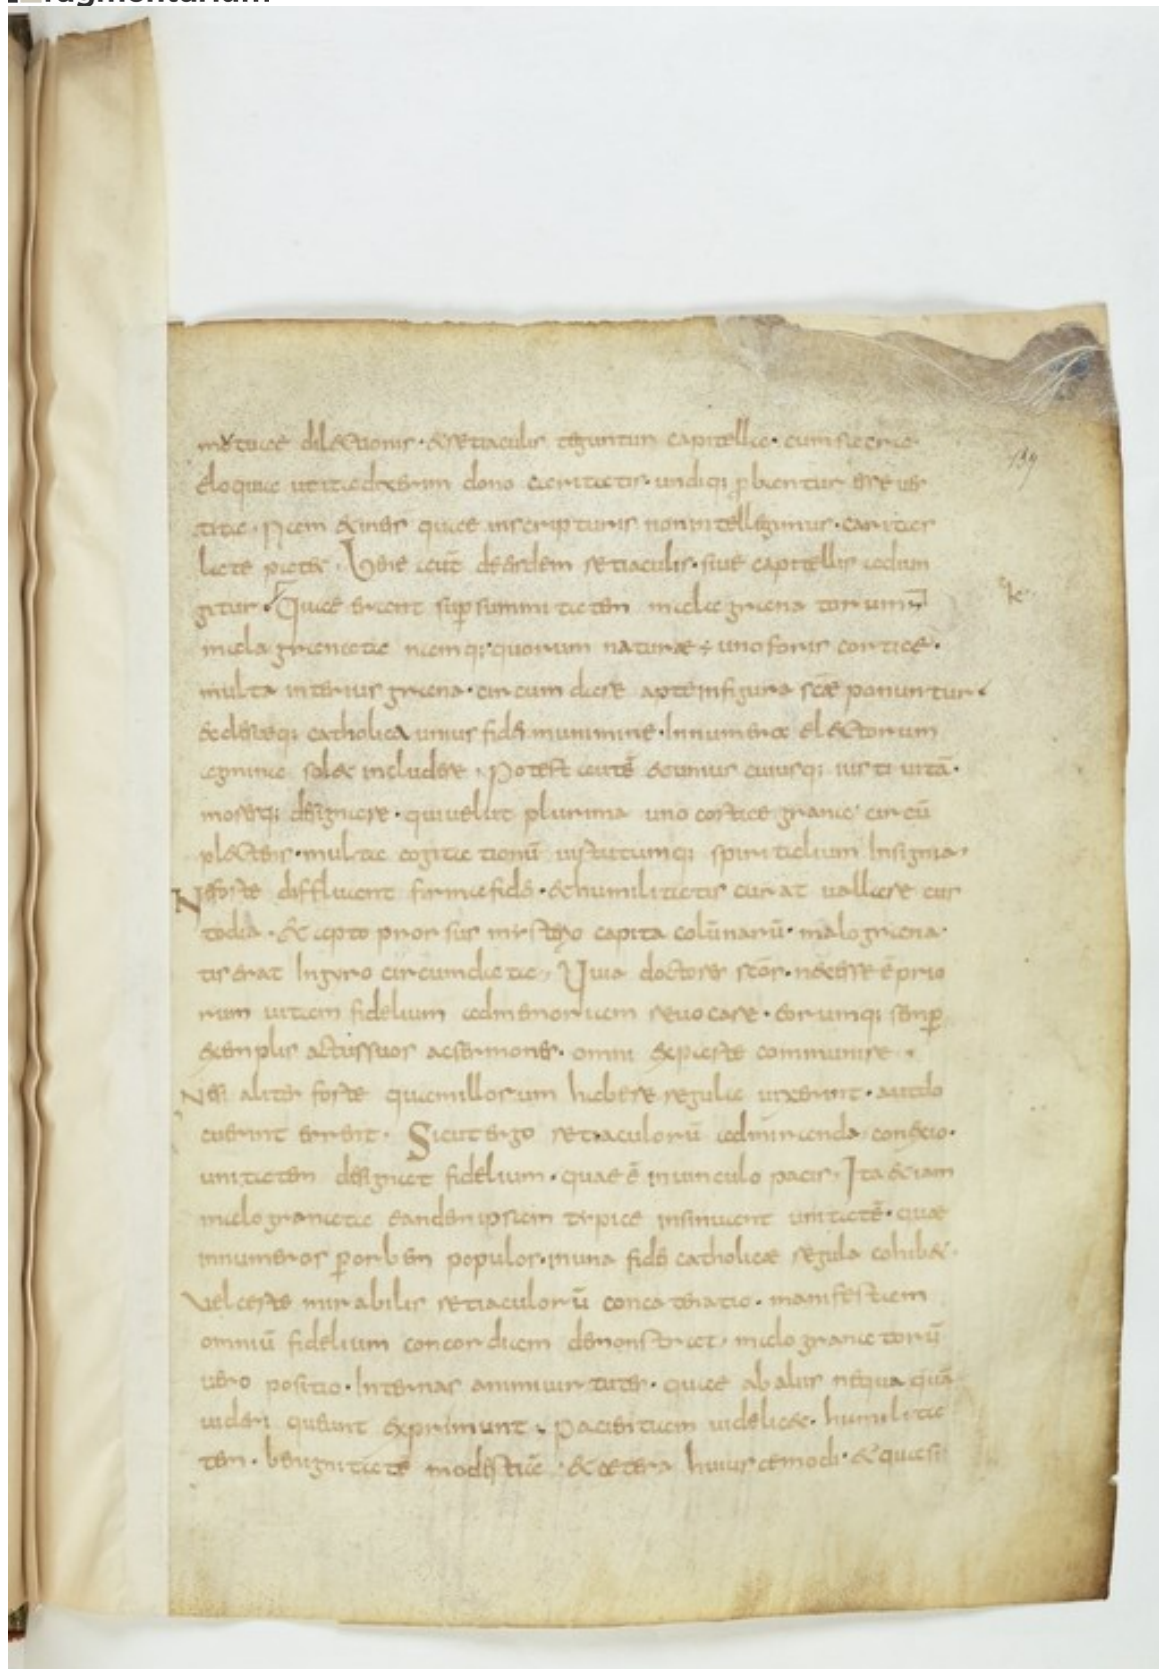 fragmentarium
mutuae dilectionis · & retiaculis teguntur capitella · cum sacra
eloquia ut ita dixerim dono caritatis · undiq; ꝓbantur esse ues
tita · Nam & in eis quae in scripturis non intellegimus · caritas
late patet · Unde aut̄ de eisdem retiaculis · siue capitellis adiun
gitur · Quae erant sup̄ summitatem malagranatorum
malagranata namq; quorum naturae ÷ uno foris cortice ·
multa interius grana · circumdare apte in figura sc̄ae ponuntur ·
ecclesiaeq; catholica unius fidei munimine · Innumera electorum
agmina solet includere · Potest autē & unius cuiusq; iusti uitā ·
moresq; designare · qui uelut plurima uno cortice grana circū
plectens · multa cogitationū uirtutumq; spiritalium Insignia ·
Ne forte diffluant firma fidei · & humilitatis curat uallare cus
todia · & apto prorsus mysterio capita colūnarū · malograna
tis erat In gyro circumdata · Quia doctores sc̄os · necesse ē prio
rum uitam fidelium ad memoriam reuocare · eorumq; semp̄
exemplis actus suos ac sermones · omni ex parte communire ·
Ne si aliter forte quam illorum habere regula uixerint · aut do
cuerint errent · Sicut ergo retiaculorū admiranda conexio ·
unitatem designat fidelium · quae ē in uinculo pacis · Ita etiam
malogranata eandem ipsam typice insinuant unitatē · quae
innumeros ꝑ orbem populos · in una fidei catholicae regula cohibet ·
Vel certe mirabilis retiaculorū concatenatio · manifestam
omniū fidelium concordiam demonstrat · malogranatorū
uero positio · Internas animi uirtutes · quae ab aliis nequaquā
uideri queunt exprimunt · Pacientiam uidelicet · humilita
tem · benignitatē modestiā · & cetera huiuscemodi · & quasi
139